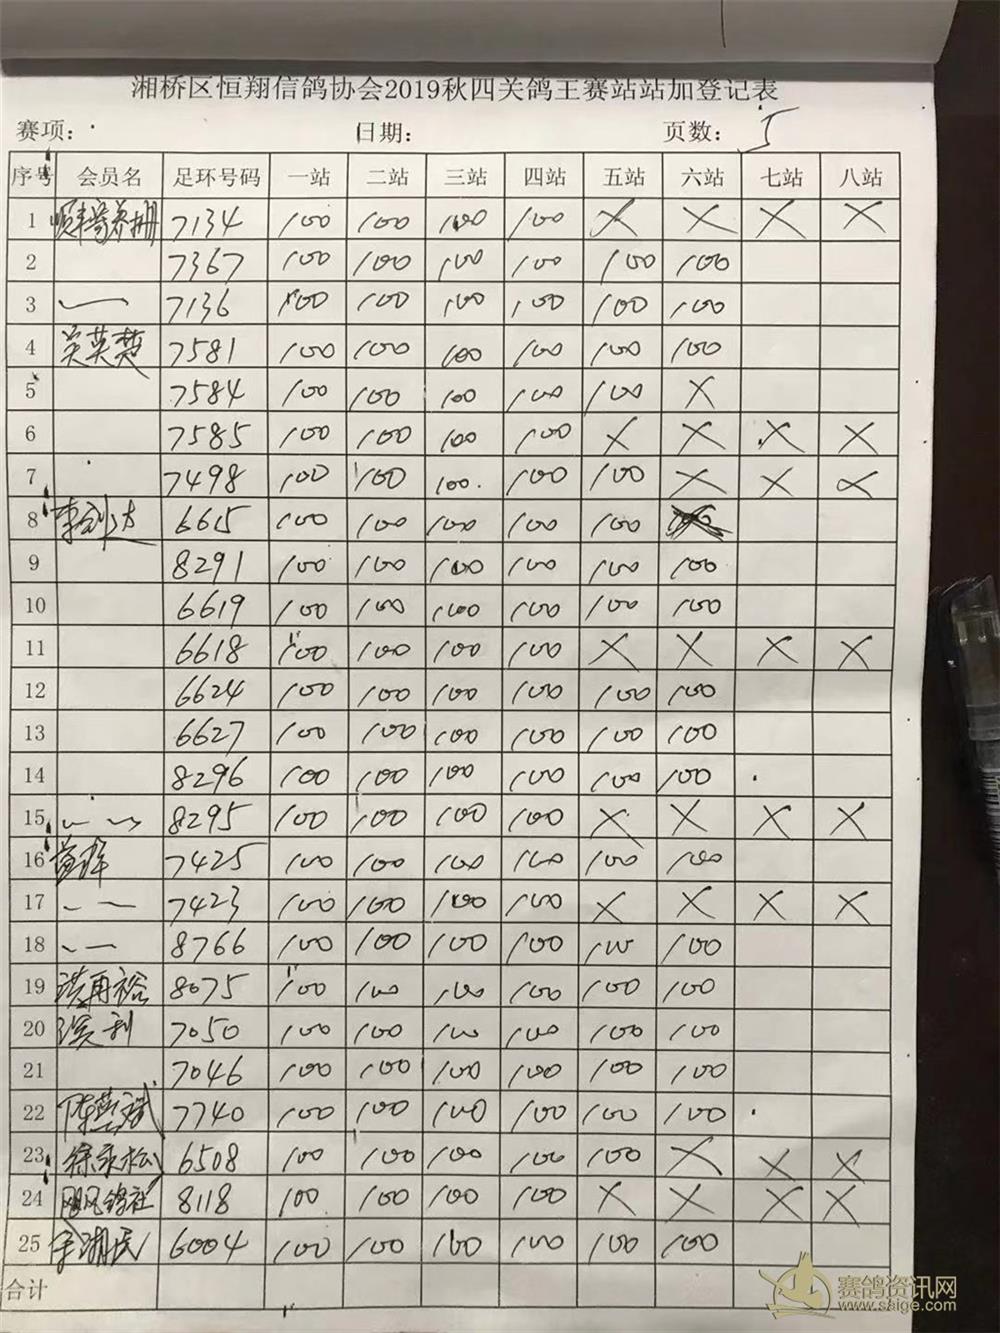 湘桥区恒翔信鸽协会2019秋四关鸽王赛站站加登记表
赛项: 日期: 页数: 5
序号 会员名 足环号码 一站 二站 三站 四站 五站 六站 七站 八站
1 7134 100 100 100 100 X X X X
2 7367 100 100 100 100 100 100
3 7136 100 100 100 100 100 100
4 吴英楚 7581 100 100 100 100 100 100
5 7584 100 100 100 100 100 X
6 7585 100 100 100 100 X X X X
7 7498 100 100 100 100 100 X X X
8 6615 100 100 100 100 100
9 8291 100 100 100 100 100 100
10 6619 100 100 100 100 100 100
11 6618 100 100 100 100 X X X X
12 6624 100 100 100 100 100 100
13 6627 100 100 100 100 100 100
14 8296 100 100 100 100 100 100
15 8295 100 100 100 100 X X X X
16 7425 100 100 100 100 100 100
17 7423 100 100 100 100 X X X X
18 8766 100 100 100 100 100 100
19 洪再裕 8075 100 100 100 100 100 100
20 7050 100 100 100 100 100 100
21 7046 100 100 100 100 100 100
22 7740 100 100 100 100 100 100
23 徐永松 6508 100 100 100 100 100 X X X
24 飓风鸽社 8118 100 100 100 100 X X X X
25 6004 100 100 100 100 100 100
合计
赛鸽资讯网
www.saige.com